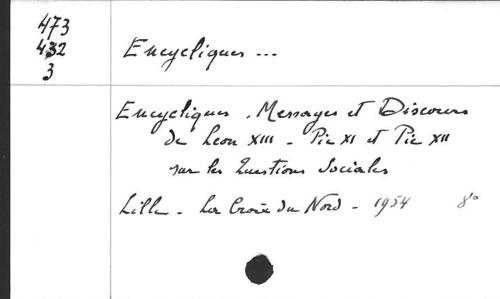 473
432
3
Encycliques ...
Encycliques, Messages et Discours
de Leon XIII - Pie XI et Pie XII
sur les Questions Sociales
Lille - La Croix du Nord - 1954 8°